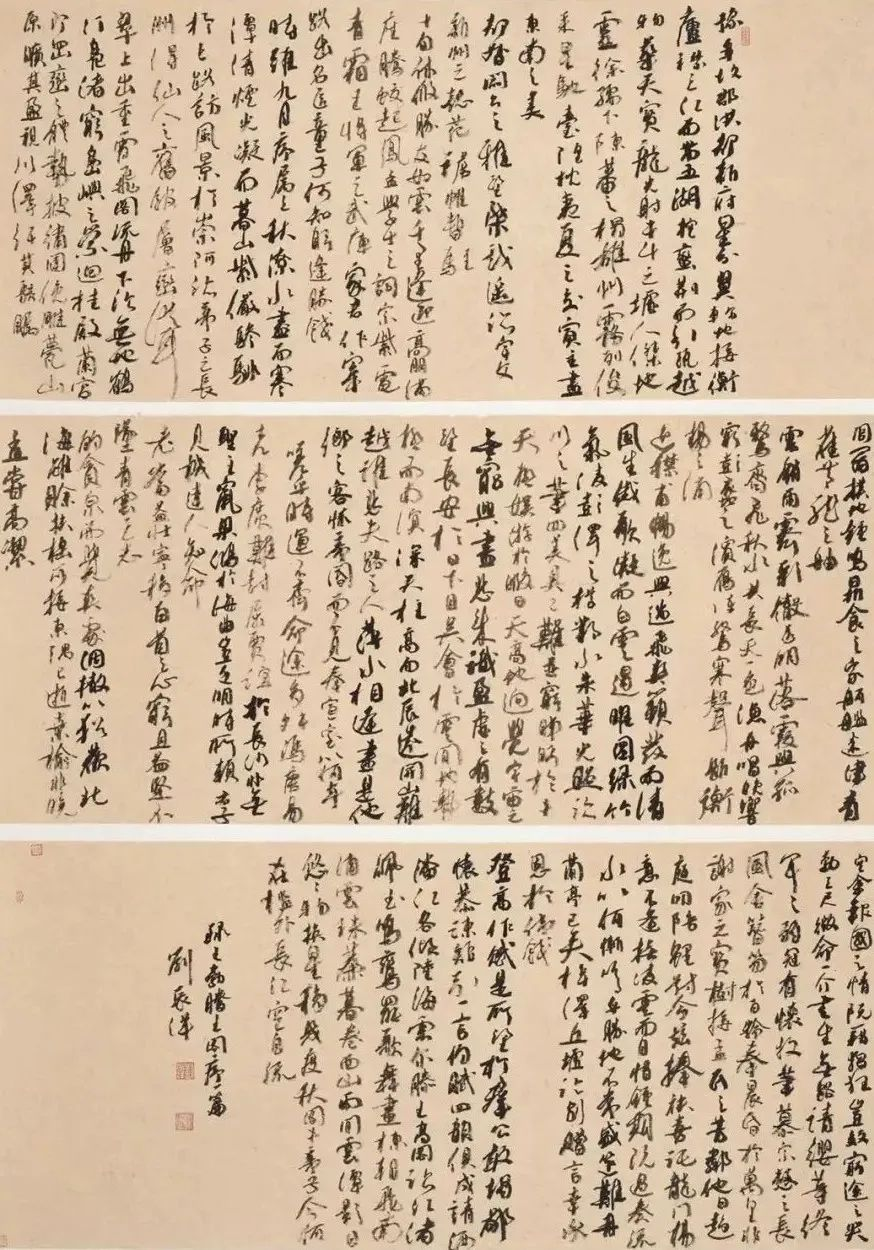 豫章故郡洪都新府星分翼軫地接衡
廬襟三江而帶五湖控蠻荊而引甌越
物華天寶龍光射牛斗之墟人傑地
靈徐孺下陳蕃之榻雄州霧列俊
采星馳臺隍枕夷夏之交賓主盡
東南之美
都督閻公之雅望棨戟遙臨宇文
新州之懿范襜帷暫駐
十旬休假勝友如雲千里逢迎高朋滿
座騰蛟起鳳孟學士之詞宗紫電
青霜王將軍之武庫家君作宰
路出名區童子何知躬逢勝餞
時維九月序屬三秋潦水盡而寒
潭清煙光凝而暮山紫儼驂騑
於上路訪風景於崇阿臨帝子之長
洲得仙人之舊館層巒聳
翠上出重霄飛閣流丹下臨無地鶴
汀鳧渚窮島嶼之縈迴桂殿蘭宮
即岡巒之體勢披繡闥俯雕甍山
原曠其盈視川澤紆其駭矚
閭閻撲地鐘鳴鼎食之家舸艦迷津青
雀黃龍之舳
雲銷雨霽彩徹區明落霞與孤
鶩齊飛秋水共長天一色漁舟唱晚響
窮彭蠡之濱雁陣驚寒聲斷衡
陽之浦
遙襟甫暢逸興遄飛爽籟發而清
風生纖歌凝而白雲遏睢園綠竹
氣凌彭澤之樽鄴水朱華光照臨
川之筆四美具二難並窮睇眄於中
天極娛遊於暇日天高地迥覺宇宙之
無窮興盡悲來識盈虛之有數
望長安於日下目吳會於雲間地勢
極而南溟深天柱高而北辰遠關山難
越誰悲失路之人萍水相逢盡是他
鄉之客懷帝閽而不見奉宣室以何年
嗟乎時運不齊命途多舛馮唐易
老李廣難封屈賈誼於長沙非無
聖主竄梁鴻於海曲豈乏明時所賴君子
見機達人知命
老當益壯寧移白首之心窮且益堅不
墜青雲之志
酌貪泉而覺爽處涸轍以猶歡北
海雖賒扶搖可接東隅已逝桑榆非晚
孟嘗高潔
空余報國之情阮籍猖狂豈效窮途之哭
勃三尺微命一介書生無路請纓等終
軍之弱冠有懷投筆慕宗愨之長
風舍簪笏於百齡奉晨昏於萬里非
謝家之寶樹接孟氏之芳鄰他日趨
庭叨陪鯉對今茲捧袂喜託龍門楊
意不逢撫凌雲而自惜鍾期既遇奏流
水以何慚嗚乎勝地不常盛筵難再
蘭亭已矣梓澤丘墟臨別贈言幸承
恩於偉餞
登高作賦是所望於群公敢竭鄙
懷恭疏短引一言均賦四韻俱成請洒
潘江各傾陸海云爾滕王高閣臨江渚
佩玉鳴鸞罷歌舞畫棟朝飛南
浦雲珠簾暮卷西山雨閒雲潭影日
悠悠物換星移幾度秋閣中帝子今何
在檻外長江空自流
王勃滕王閣序一篇
劉